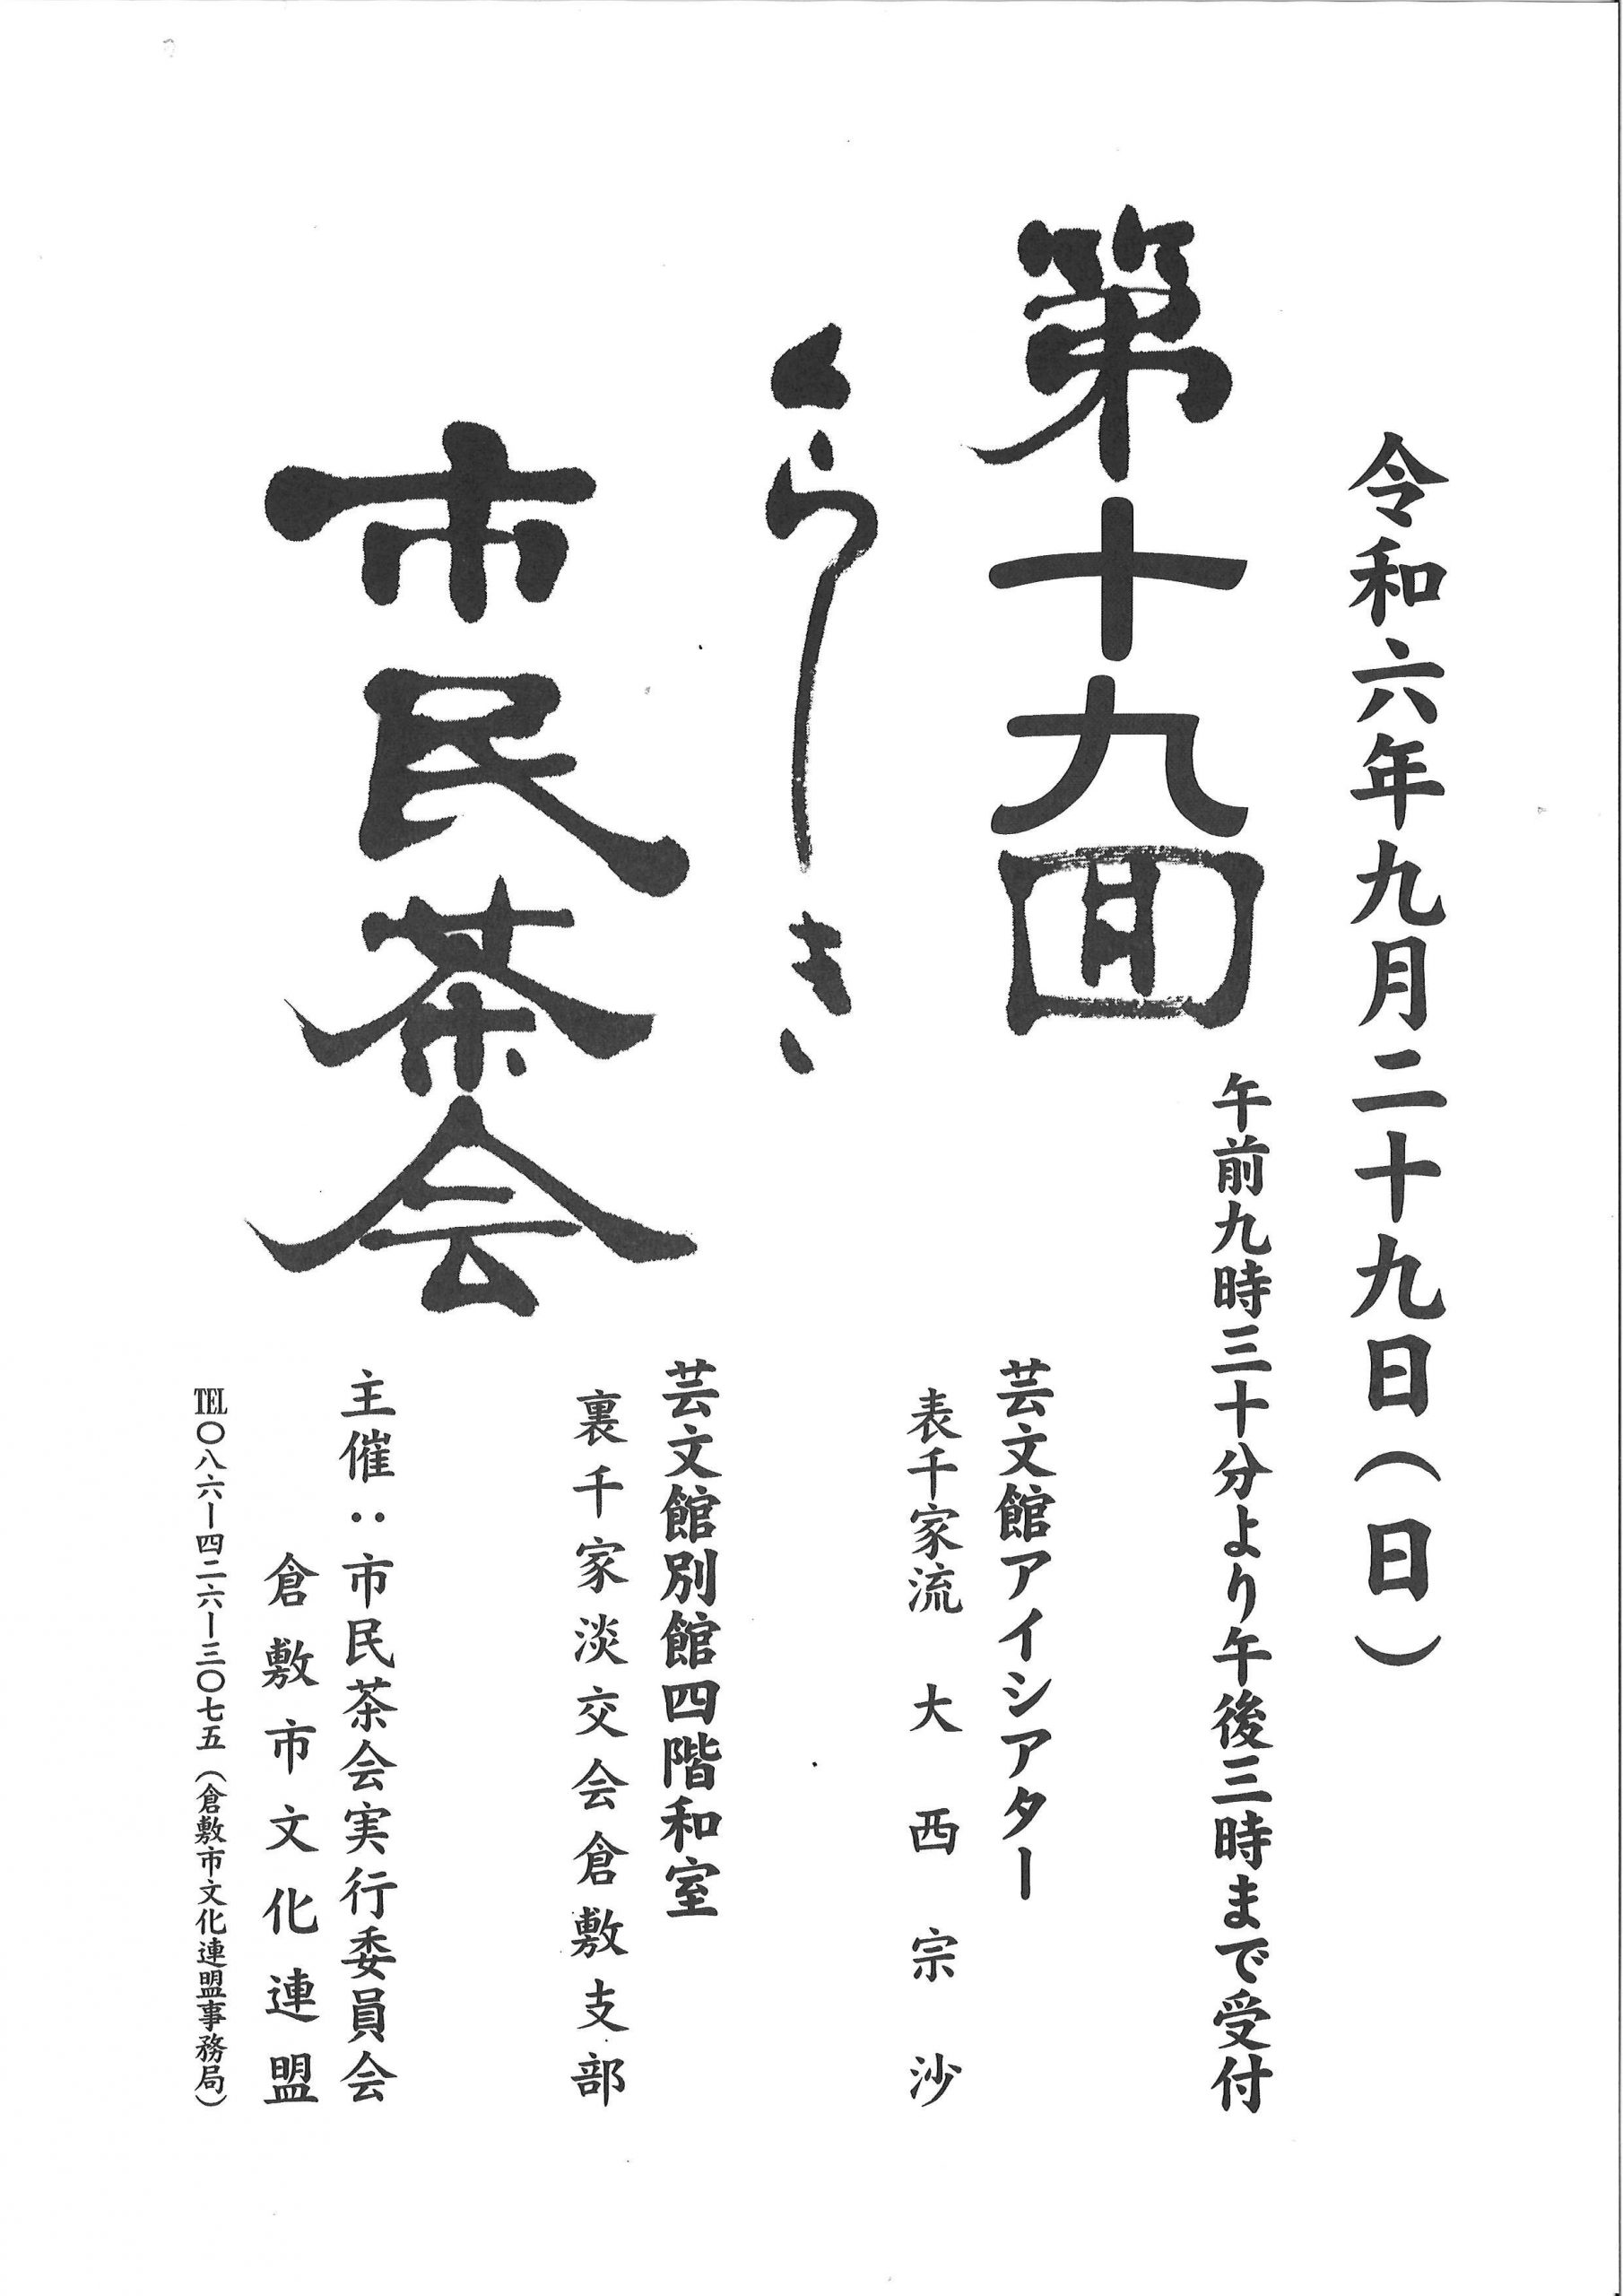 令和六年九月二十九日（日）
午前九時三十分より午後三時まで受付
第十九回
くらしき
市民茶会
芸文館アイシアター
表千家流　大西宗沙
芸文館別館四階和室
裏千家淡交会倉敷支部
主催：市民茶会実行委員会
倉敷市文化連盟
TEL〇八六ー四二六ー三〇七五（倉敷市文化連盟事務局）